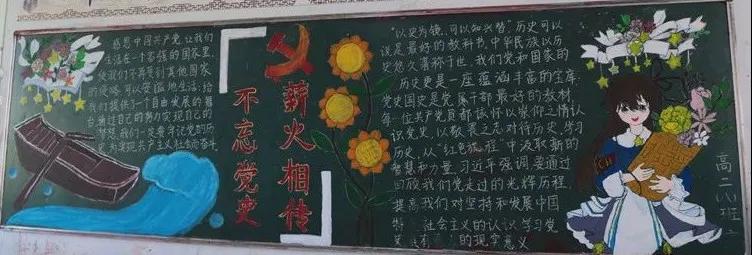 感恩中国共产党，让我们
生活在一个富强的国家里，
使我们不再受到其他国家
的侵略，可以安逸地生活，给
我们提供了一个自由发展的舞
台，通过自己的努力实现自己的
梦想，我们一定要牢记党的历
史，为实现共产主义社会而奋斗
不忘党史
薪火相传
“以史为镜，可以知兴替”历史可以
说是最好的教科书，中华民族以历
史悠久著称于世，我们党和国家的
历史更是一座蕴涵丰富的宝库，
党史国史是党属干部最好的教材，
每一位共产党员都该怀以崇仰之情认
识党史，以敬畏之志对待历史，学习
历史，从“红色旅程”中汲取新的
智慧和力量，习近平强调，要通过
回放我们党走过的光辉历程，
提高我们对坚持和发展中国
特 社会主义的认识，学习党
史 有 的现实意义
高二八班